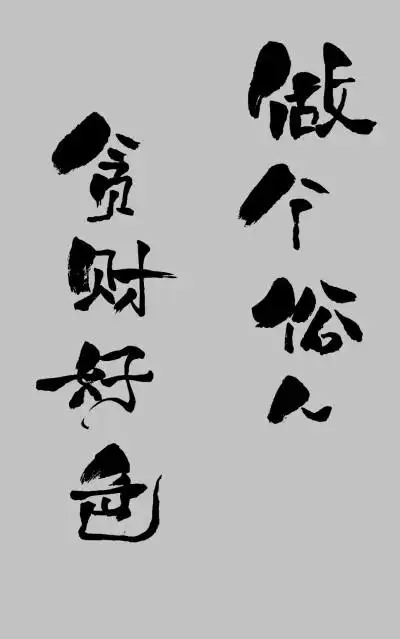 做个俗人
贪财好色